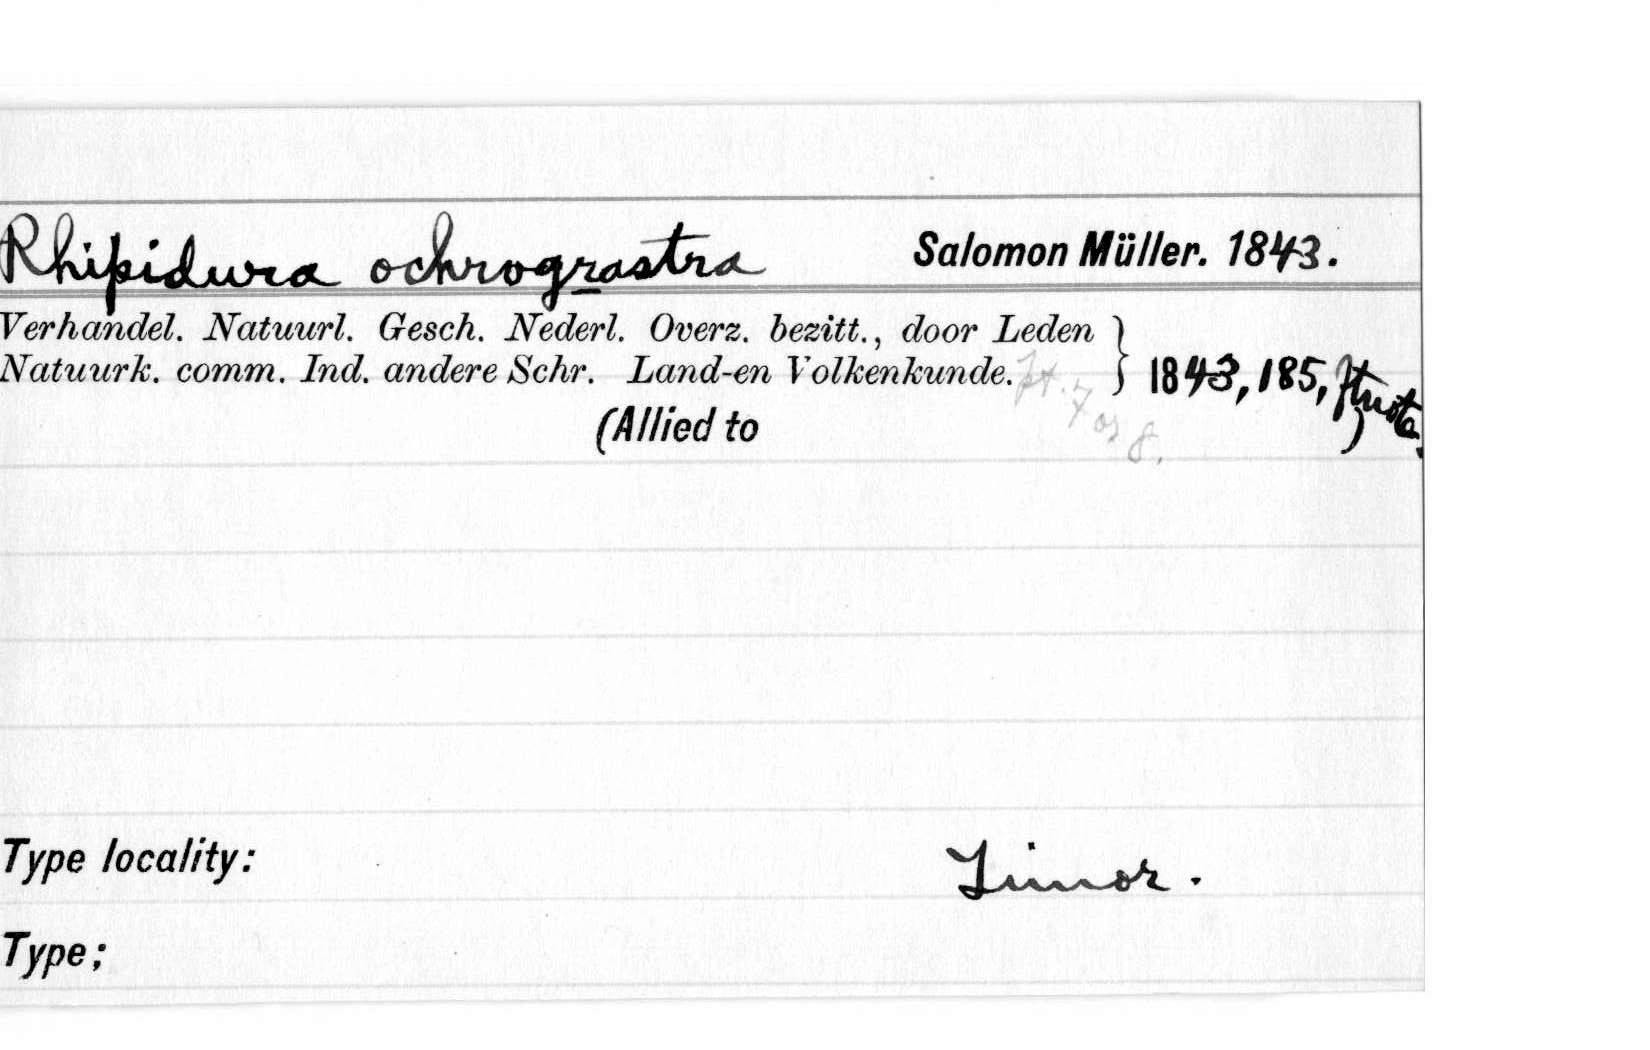 Rhipidura ochrograstra Salomon Müller. 1843.
Verhandel. Natuurl. Gesch. Nederl. Overz. bezitt., door Leden
Natuurk. comm. Ind. andere Schr. Land-en Volkenkunde. } 1843, 185, ftnote.
pt. 7 or 8.
(Allied to )
Type locality: Timor.
Type;